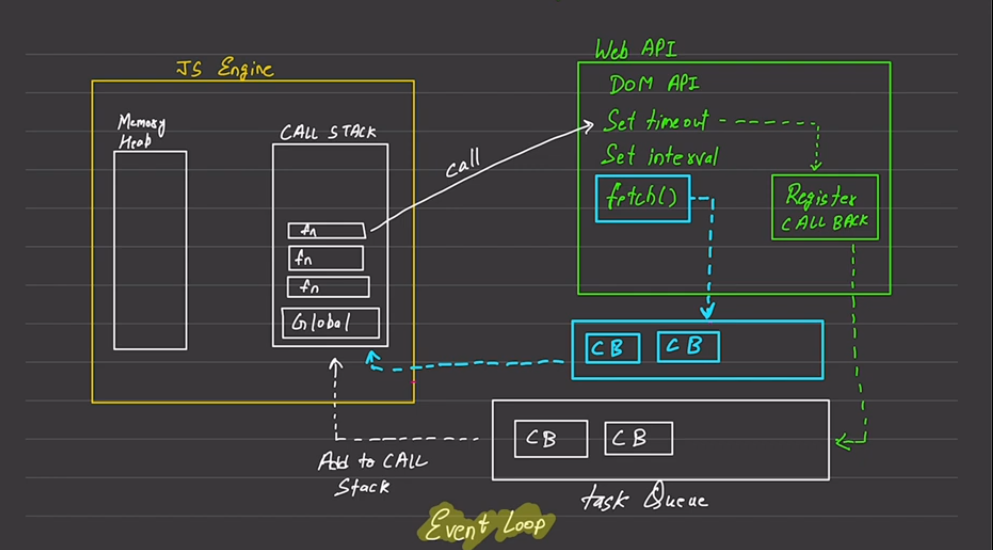 JS Engine
Memory
Heab
CALL STACK
fn
fn
fn
Global
call
Web API
DOM API
Set timeout
Set interval
fetch()
Register
CALL BACK
CB CB
CB CB
Add to CALL
Stack
task Queue
Event Loop